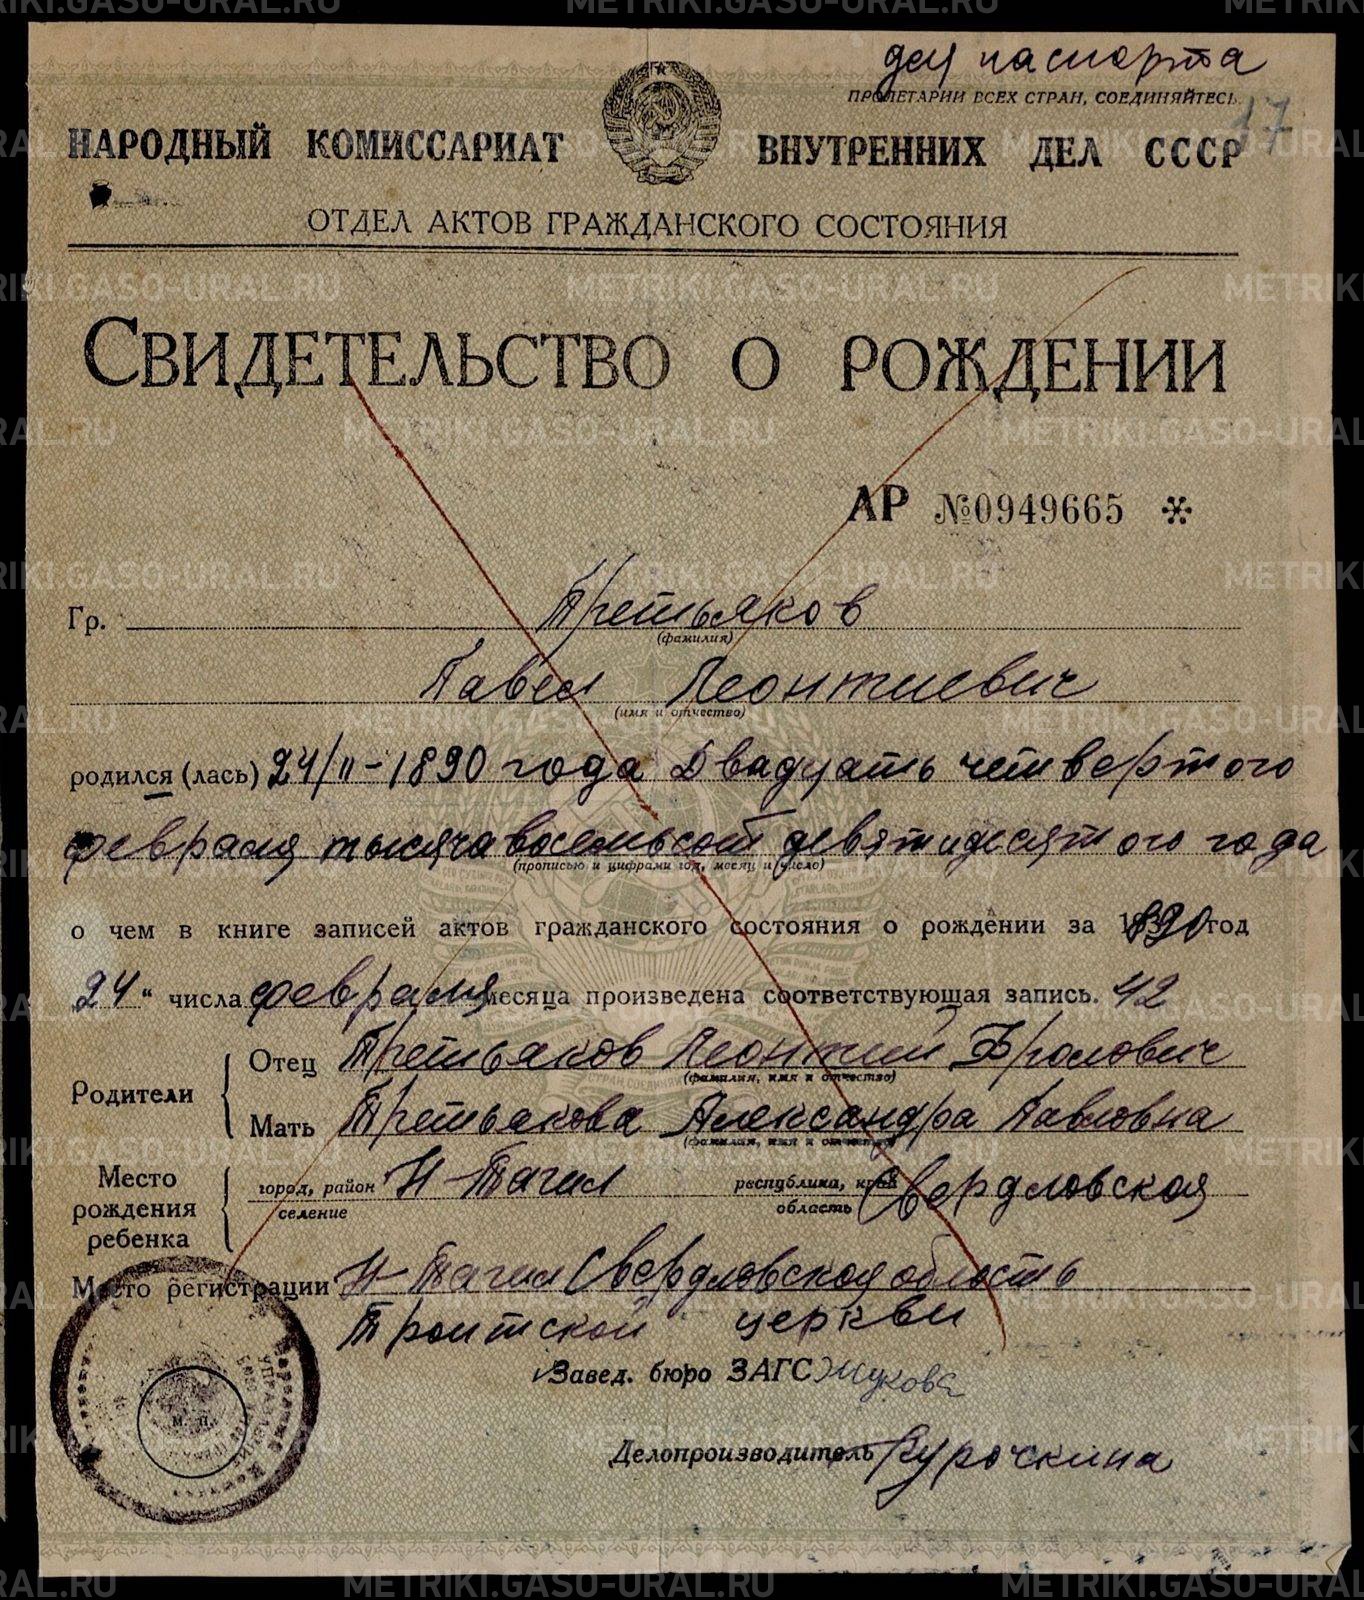 для паспорта
ПРОЛЕТАРИИ ВСЕХ СТРАН, СОЕДИНЯЙТЕСЬ
17
НАРОДНЫЙ КОМИССАРИАТ ВНУТРЕННИХ ДЕЛ СССР
ОТДЕЛ АКТОВ ГРАЖДАНСКОГО СОСТОЯНИЯ
СВИДЕТЕЛЬСТВО О РОЖДЕНИИ
АР №0949665
Гр. Третьяков
(фамилия)
Павел Леонтиевич
(имя и отчество)
родился (лась) 24/II-1890 года Двадцать четвертого
февраля тысяча восемьсот девятидесятого года
(прописью и цифрами год, месяц и число)
о чем в книге записей актов гражданского состояния о рождении за 1890 год
24 " числа февраля месяца произведена соответствующая запись. 42
Родители
Отец Третьяков Леонтий Фролович
(фамилия, имя и отчество)
Мать Третьякова Александра Павловна
(фамилия, имя и отчество)
Место рождения ребенка
город, район селение Н-Тагил республика, край область Свердловская
Место регистрации Н-Тагил Свердловская область
Троитской церкви
Завед. бюро ЗАГС Жукова
Делопроизводитель Курочкина
М. П.
METRIKI.GASO-URAL.RU